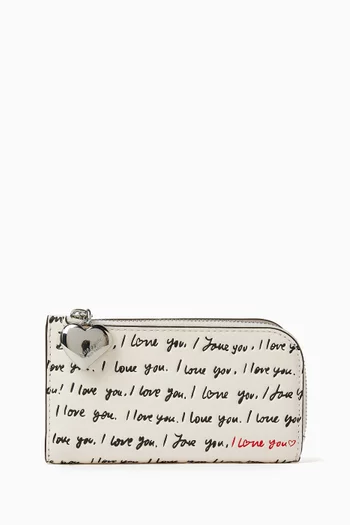 you, I love you, I love you, I love y
love you. I love you. I love you. I love you.
ou! I love you. I love you. I love you. I lov
I love you. I love you. I love you. I love yo
love you. I love you. I love you, I love you♡